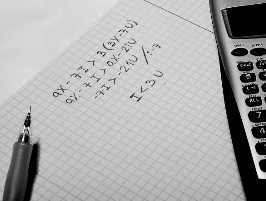 9x - 7I > 3(3x - 7U)
9x - 7I > 9x - 21U
-7I > -21U /:-7
I < 3U